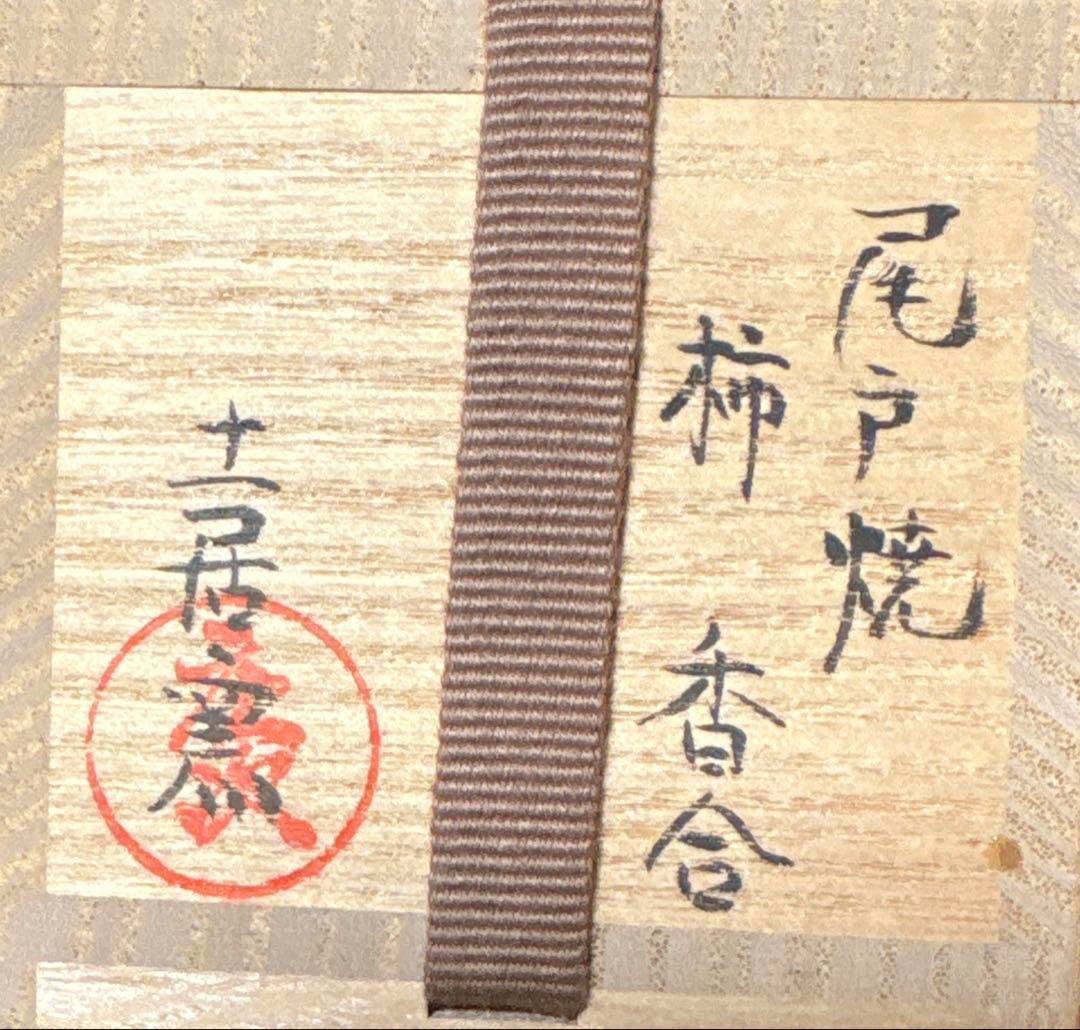 尾戸焼
柿 香合
土居窯